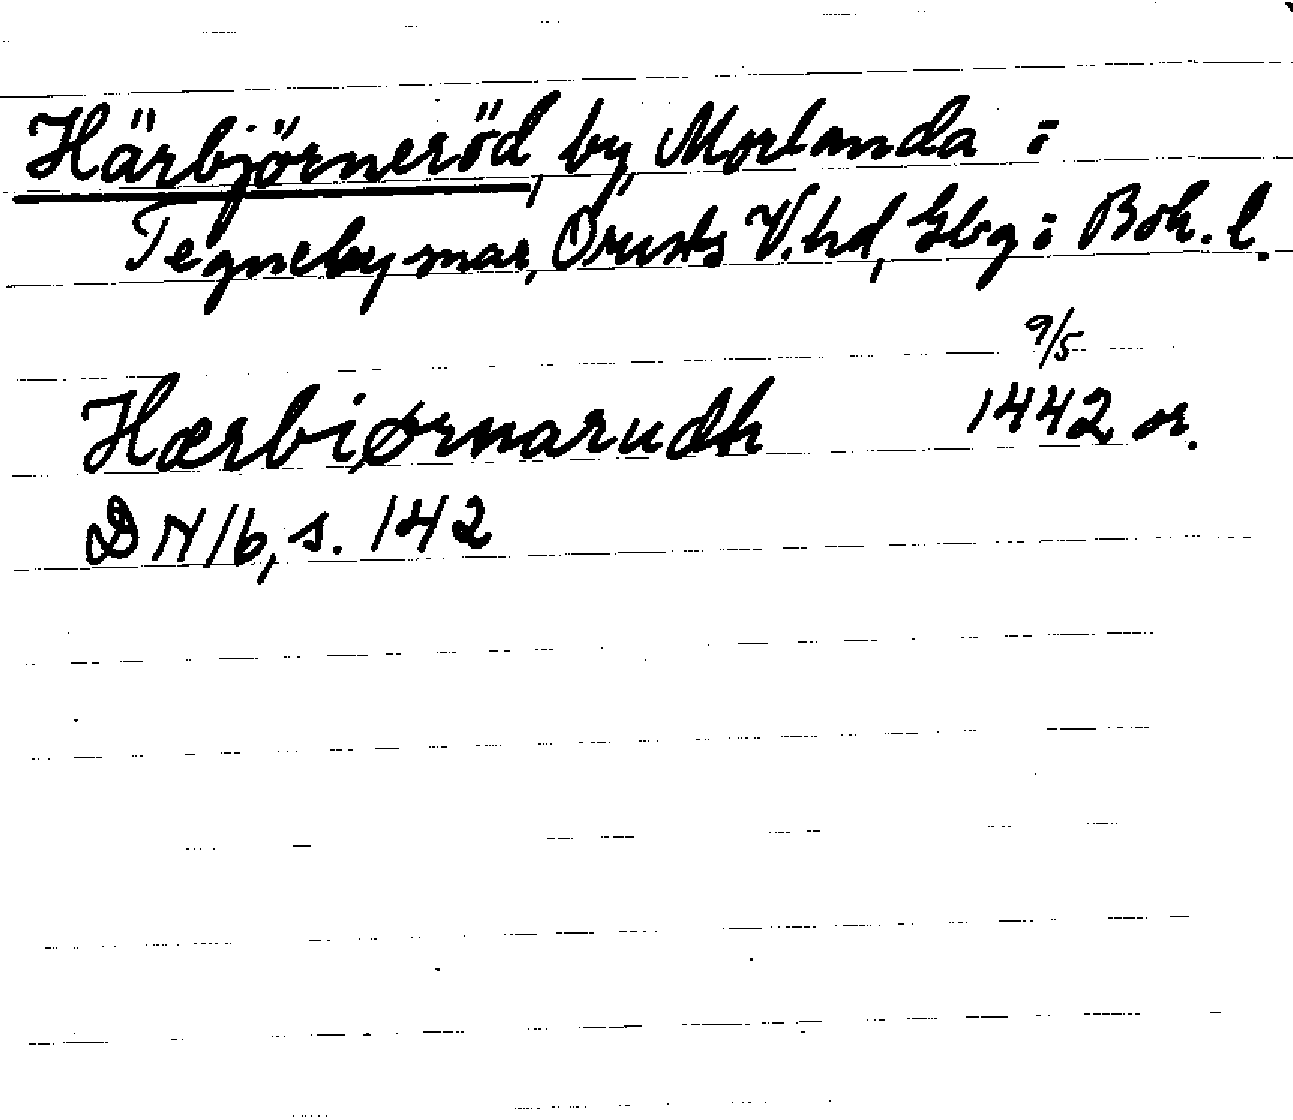 Härbjörneröd, by, Morlanda i
Tegneby mar, Orusts V. hd, Gbg i Boh. l.
9/5
Hærbiørnarudh 1442 or.
DN 16, s. 142